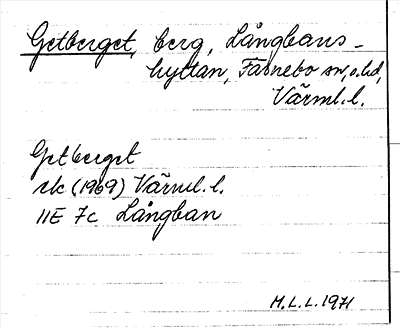 Getberget, berg, Långbans-
hyttan, Färnebo sn, o. hd,
Värml. l.
Getberget
ek (1969) Värml. l.
11E 7c Långban
M.L.L. 1971